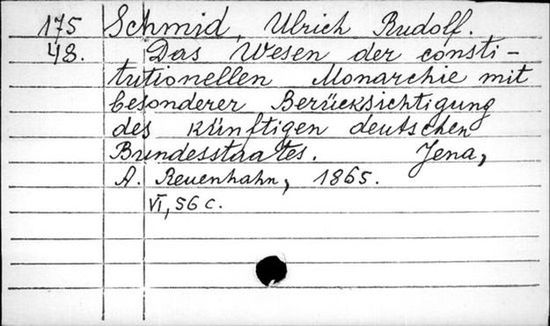 175 Schmid, Ulrich Rudolf.
48. Das Wesen der consti-
tutionellen Monarchie mit
besonderer Berücksichtigung
des künftigen deutschen
Bundesstaates. Jena,
A. Reuenhahn, 1865.
VI, 56 c.